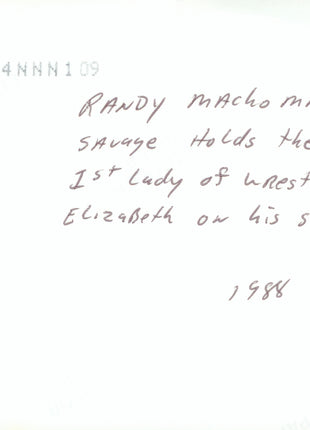 4NNN1 09
RANDY MACHO MA
SAVAGE HOLDS the
1st LADY of WREST
ELIZABETH ON his S
1988